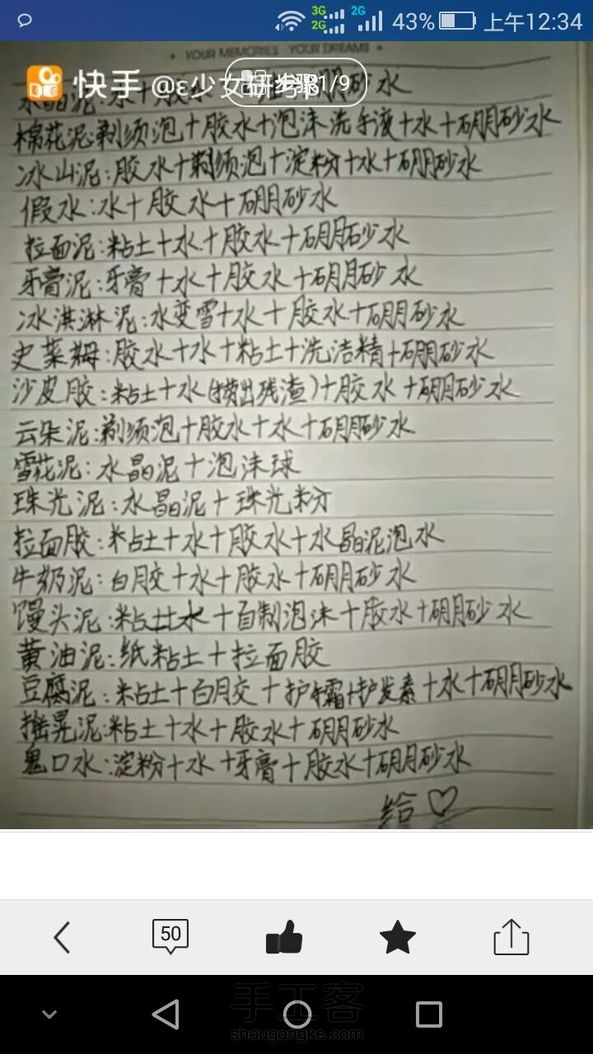 3G
2G
2G
43%
上午12:34
YOUR MEMORIES YOUR DREAMS
快手 @ε少女研
步骤1/9
水晶泥:水+胶水+硼砂水
棉花泥:剃须泡+胶水+泡沫洗手液+水+硼砂水
冰山泥:胶水+剃须泡+淀粉+水+硼砂水
假水:水+胶水+硼砂水
拉面泥:粘土+水+胶水+硼砂水
牙膏泥:牙膏+水+胶水+硼砂水
冰淇淋泥:水变雪+水+胶水+硼砂水
史莱姆:胶水+水+粘土+洗洁精+硼砂水
沙皮胶:粘土+水(捞出残渣)+胶水+硼砂水
云朵泥:剃须泡+胶水+水+硼砂水
雪花泥:水晶泥+泡沫球
珠光泥:水晶泥+珠光粉
拉面胶:粘土+水+胶水+水晶泥泡水
牛奶泥:白胶+水+胶水+硼砂水
馒头泥:粘土水+自制泡沫+胶水+硼砂水
黄油泥:纸粘土+拉面胶
豆腐泥:粘土+白胶+护手霜+护发素+水+硼砂水
摇晃泥:粘土+水+胶水+硼砂水
鬼口水:淀粉+水+牙膏+胶水+硼砂水
给♡
50
手工客
shougongke.com